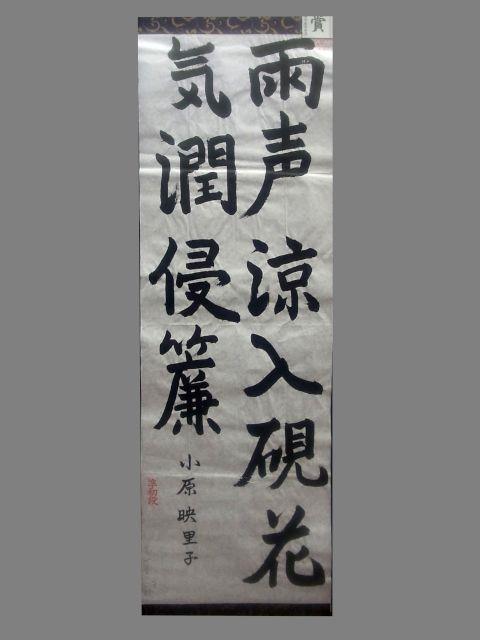 賞
雨声涼入硯花
気潤侵簾
小原映里子
準初段